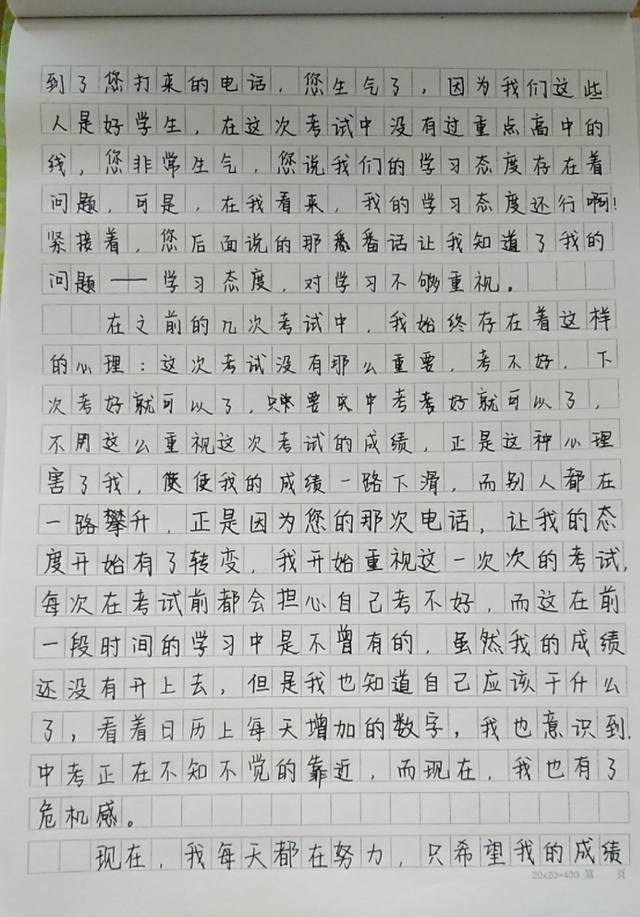 到了您打来的电话，您生气了，因为我们这些
人是好学生，在这次考试中没有过重点高中的
线，您非常生气，您说我们的学习态度存在着
问题，可是，在我看来，我的学习态度还行啊！
紧接着，您后面说的那番话让我知道了我的
问题——学习态度，对学习不够重视。
在之前的几次考试中，我始终存在着这样
的心理：这次考试没有那么重要，考不好，下
次考好就可以了，只要中考考好就可以了，
不用这么重视这次考试的成绩，正是这种心理
害了我，使我的成绩一路下滑，而别人都在
一路攀升，正是因为您的那次电话，让我的态
度开始有了转变，我开始重视这一次次的考试，
每次在考试前都会担心自己考不好，而这在前
一段时间的学习中是不曾有的，虽然我的成绩
还没有开上去，但是我也知道自己应该干什么
了，看着日历上每天增加的数字，我也意识到，
中考正在不知不觉的靠近，而现在，我也有了
危机感。
现在，我每天都在努力，只希望我的成绩
20×20=400 第 页